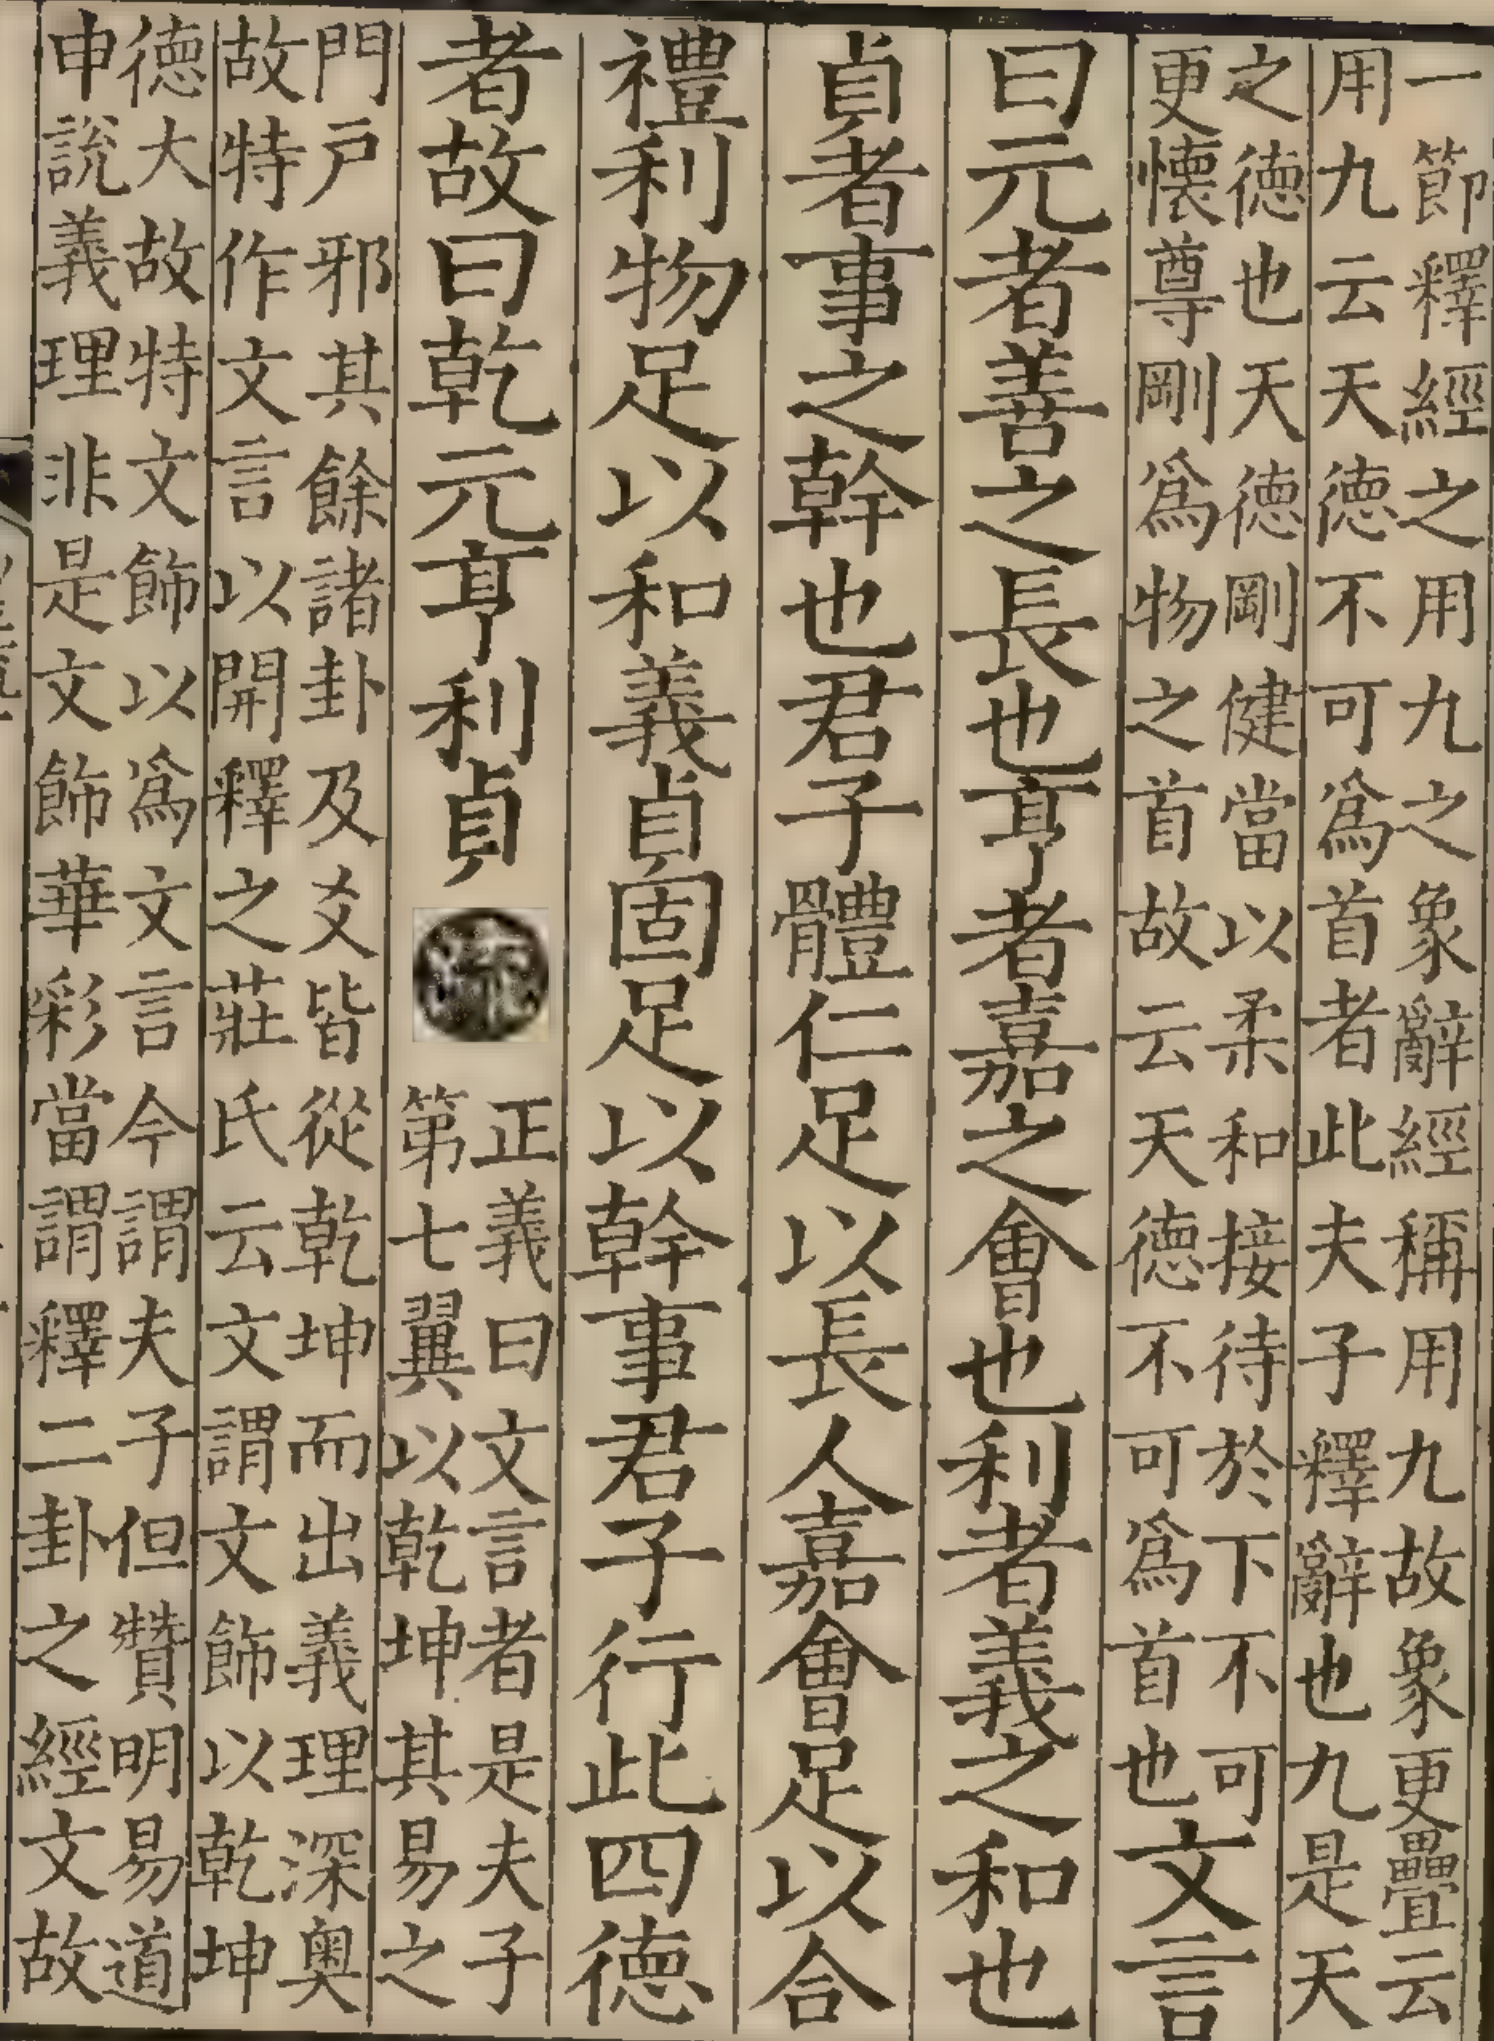 一節釋經之用九之象辭經稱用九故象更疊云
用九云天德不可爲首者此夫子釋辭也九是天
之德也天德剛健當以柔和接待於下不可
更懷尊剛爲物之首故云天德不可爲首也
文言
曰元者善之長也亨者嘉之會也利者義之和也
貞者事之幹也君子體仁足以長人嘉會足以合
禮利物足以和義貞固足以幹事君子行此四德
者故曰乾元亨利貞
疏
正義曰文言者是夫子
第七翼以乾坤其易之
門戸邪其餘諸卦及爻皆從乾坤而出義理深奥
故特作文言以開釋之莊氏云文謂文飾以乾坤
德大故特文飾以爲文言今謂夫子但贊明易道
申說義理非是文飾華彩當謂釋二卦之經文故